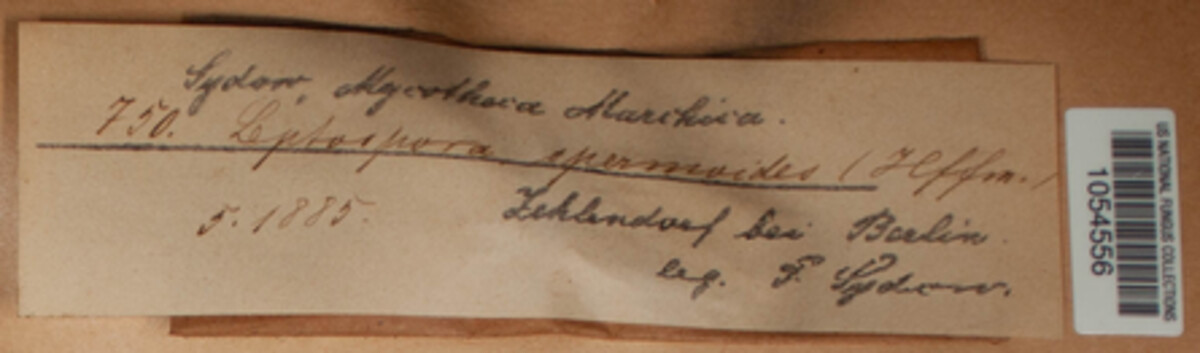 Sydow, Mycotheca Marchica.
750. Leptospora spermoides (Hffm.)
5. 1885. Zehlendorf bei Berlin.
leg. P. Sydow.
US NATIONAL FUNGUS COLLECTIONS
1054556